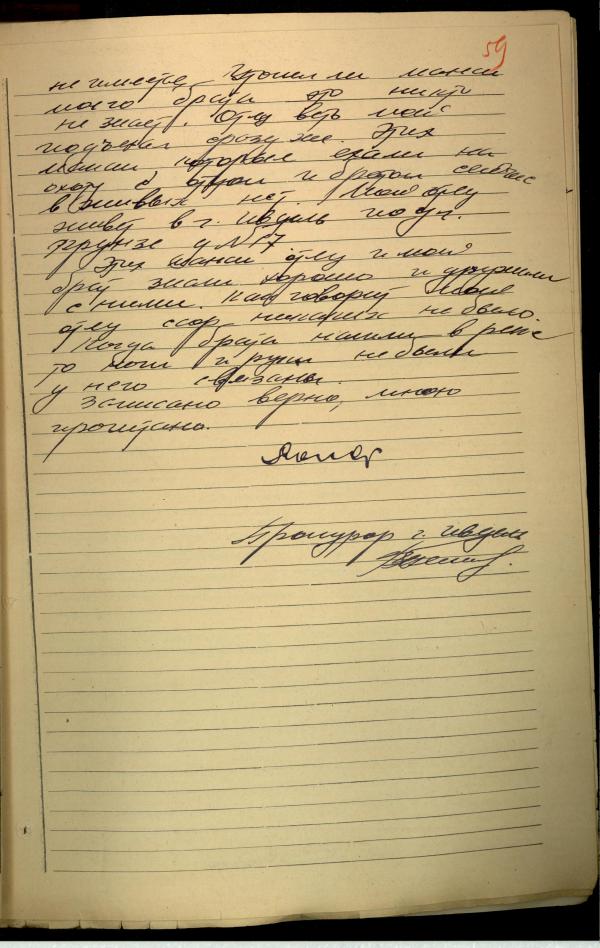 59
не имеется. Утопили ли манси
моего брата это никто
не знает. Отец ведь мой
подъехал сразу же. Этих
манси которые ехали на
охоту с отцом и братом сейчас
в живых нет. Мой отец
живет в г. Ивдель по ул.
Фрунзе д № 17
Этих манси отец и мой
брат знали хорошо и дружили
с ними. Как говорит мой
отец ссор никаких не было.
Когда брата нашли в реке
то ноги и руки не были
у него связаны.
Записано верно, мною
прочитано.
Прокурор г. Ивдель